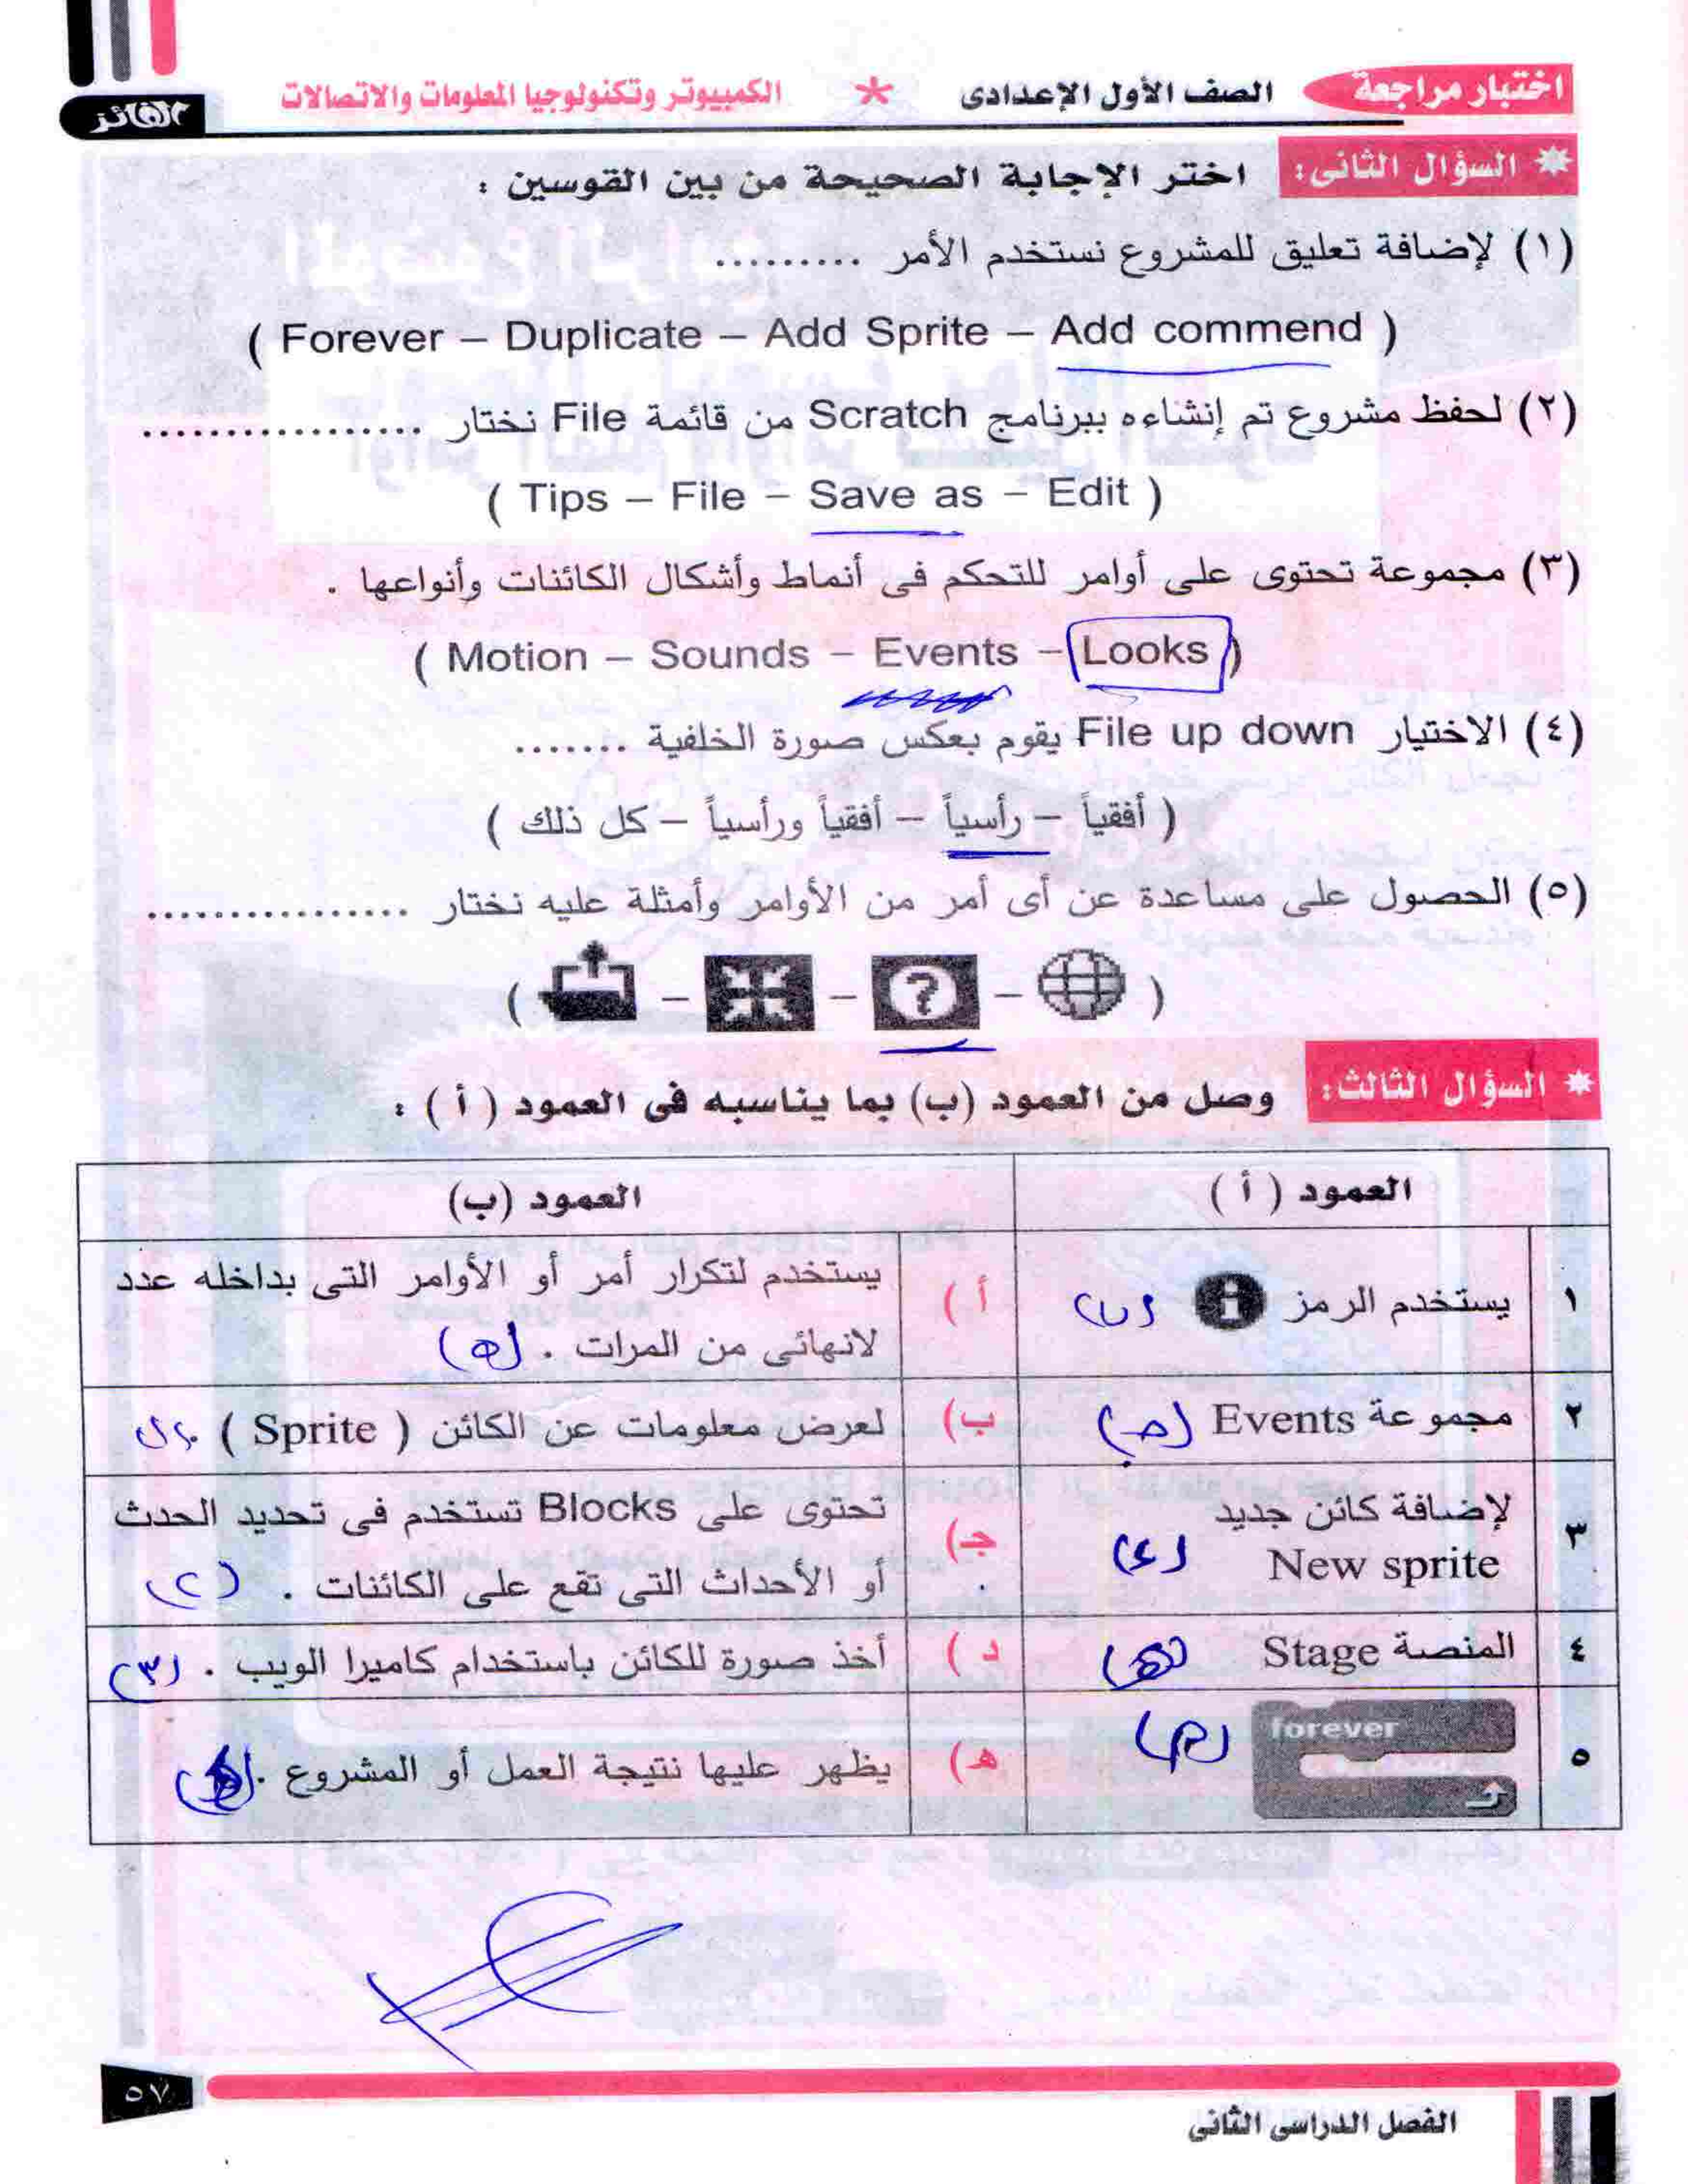 اختبار مراجعة الصف الأول الإعدادى * الكمبيوتر وتكنولوجيا المعلومات والاتصالات
الفائز
السؤال الثانى: اختر الإجابة الصحيحة من بين القوسين :
(١) لإضافة تعليق للمشروع نستخدم الأمر .........
( Forever – Duplicate – Add Sprite – Add commend )
(٢) لحفظ مشروع تم إنشاءه ببرنامج Scratch من قائمة File نختار .................
( Tips – File – Save as – Edit )
(٣) مجموعة تحتوى على أوامر للتحكم فى أنماط وأشكال الكائنات وأنواعها .
( Motion – Sounds – Events – Looks )
(٤) الاختيار File up down يقوم بعكس صورة الخلفية .......
( أفقياً – رأسياً – أفقياً ورأسياً – كل ذلك )
(٥) الحصول على مساعدة عن أى أمر من الأوامر وأمثلة عليه نختار ................
( – ? – – )
السؤال الثالث: وصل من العمود (ب) بما يناسبه فى العمود ( أ ) :
العمود ( أ ) العمود (ب)
١ يستخدم الرمز i (ب) أ ) يستخدم لتكرار أمر أو الأوامر التى بداخله عدد
لانهائى من المرات . (٥)
٢ مجموعة Events (جـ) ب) لعرض معلومات عن الكائن ( Sprite ) .
٣ لإضافة كائن جديد (د) جـ) تحتوى على Blocks تستخدم فى تحديد الحدث
New sprite . أو الأحداث التى تقع على الكائنات . (٢)
٤ المنصة Stage (هـ) د ) أخذ صورة للكائن باستخدام كاميرا الويب . (٣)
٥ forever (أ) هـ) يظهر عليها نتيجة العمل أو المشروع .
٥٧
الفصل الدراسى الثانى